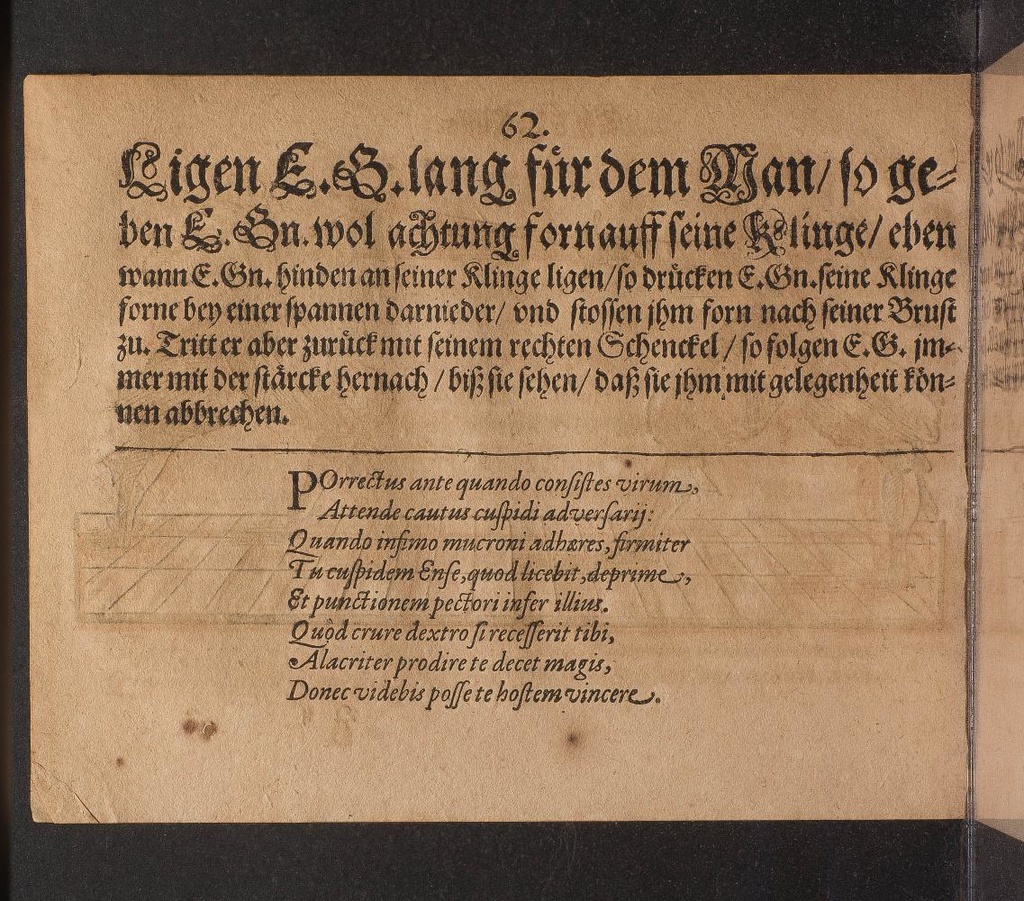 62.
Ligen E. G. lang für dem Man/ so ge-
ben E. Gn. wol achtung forn auff seine Klinge/ eben
wann E. Gn. hinden an seiner Klinge ligen/ so drücken E. Gn. seine Klinge
forne bey einer spannen darnieder/ vnd stossen jhm forn nach seiner Brust
zu. Tritt er aber zurück mit seinem rechten Schenckel/ so folgen E. G. jm-
mer mit der stärcke hernach/ biß sie sehen/ daß sie jhm mit gelegenheit kön-
nen abbrechen.
POrrectus ante quando consistes virum,
Attende cautus cuspidi adversarij:
Quando infimo mucroni adhæres, firmiter
Tu cuspidem Ense, quod licebit, deprime,
Et punctionem pectori infer illius.
Quòd crure dextro si recesserit tibi,
Alacriter prodire te decet magis,
Donec videbis posse te hostem vincere.